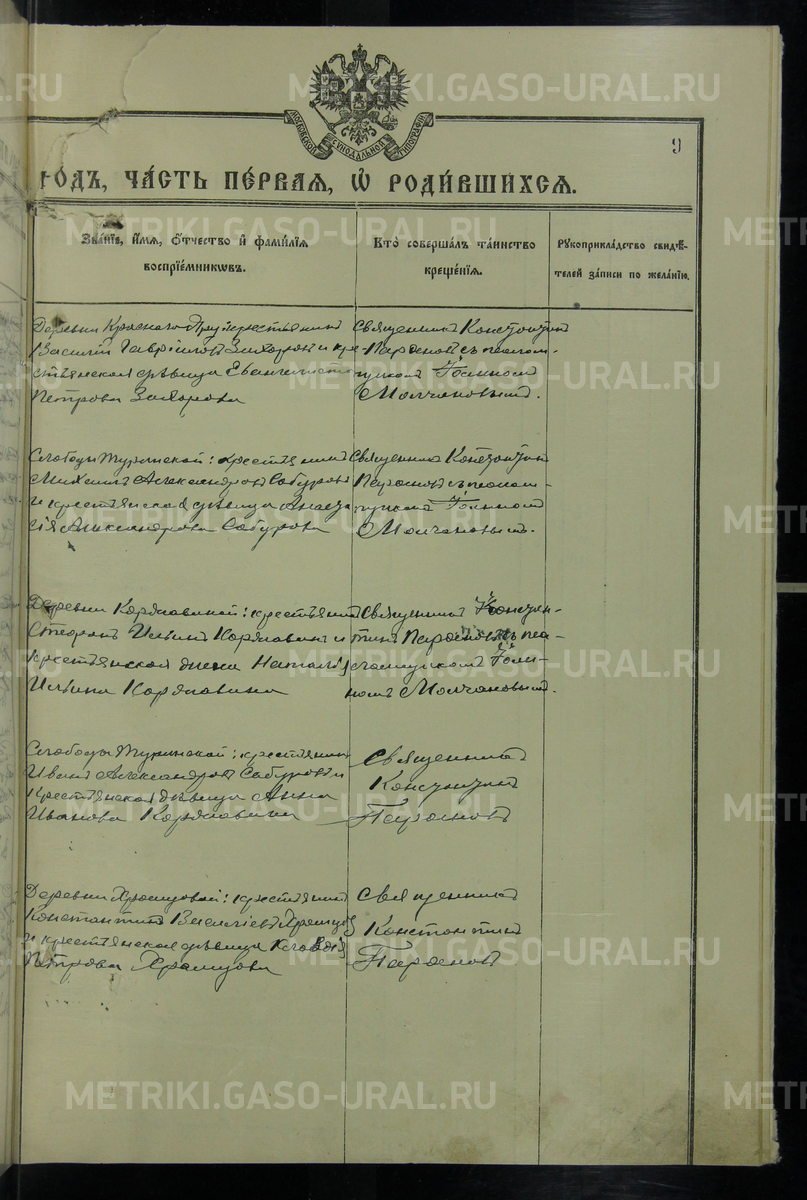 МОСКОВСКОЙ СѴНОДАЛЬНОЙ ТИПОГРАФІИ
9
ГОДЪ, ЧА́СТЬ ПЕ́РВАЯ, Ѡ҆ РОДИ́ВШИХСЯ.
Зва́нїе, и҆́мѧ, ѻ҆́тчество и҆ фами́лїѧ
воспрїе́мникѡвъ.
Кто̀ соверша́лъ та́инство
креще́нїѧ.
Рꙋкоприкла́дство свидѣ́-
телей за́писи по жела́нїю.
Деревни Краснаго Яру: крестьянинъ
Василій Гавріиловъ Захаровъ и кре-
стьянская дѣвица Евангелиста
Петрова Захарова
Священникъ Константинъ
Парѳеновъ съ псалом-
щикомъ Іоанномъ
Молчановымъ.
Слободы Туринской: крестьянинъ
Михаилъ Александровъ Сабуровъ
и крестьянская дѣвица Анаста
сія Александрова Сабурова
Священникъ Константинъ
Парѳеновъ съ псалом-
щикомъ Іоанномъ
Молчановымъ.
Деревни Корявиной: крестьянинъ
Стефанъ Ильинъ Корявинъ и
крестьянская жена Наталія
Ильина Корявина
Священникъ Констан-
тинъ Парѳеновъ съ пса-
ломщикомъ Іоан-
номъ Молчановымъ.
Слободы Туринской: крестьянинъ
Иванъ Александровъ Сабуровъ и
крестьянская дѣвица Анна
Иванова Корявина
Священникъ
Константинъ
Парѳеновъ
Деревни Храмцовой: крестьянинъ
Константинъ Василіевъ Храмцовъ
и крестьянская дѣвица Клавдія
Петрова Храмцова
Священникъ
Константинъ
Парѳеновъ
METRIKI.GASO-URAL.RU